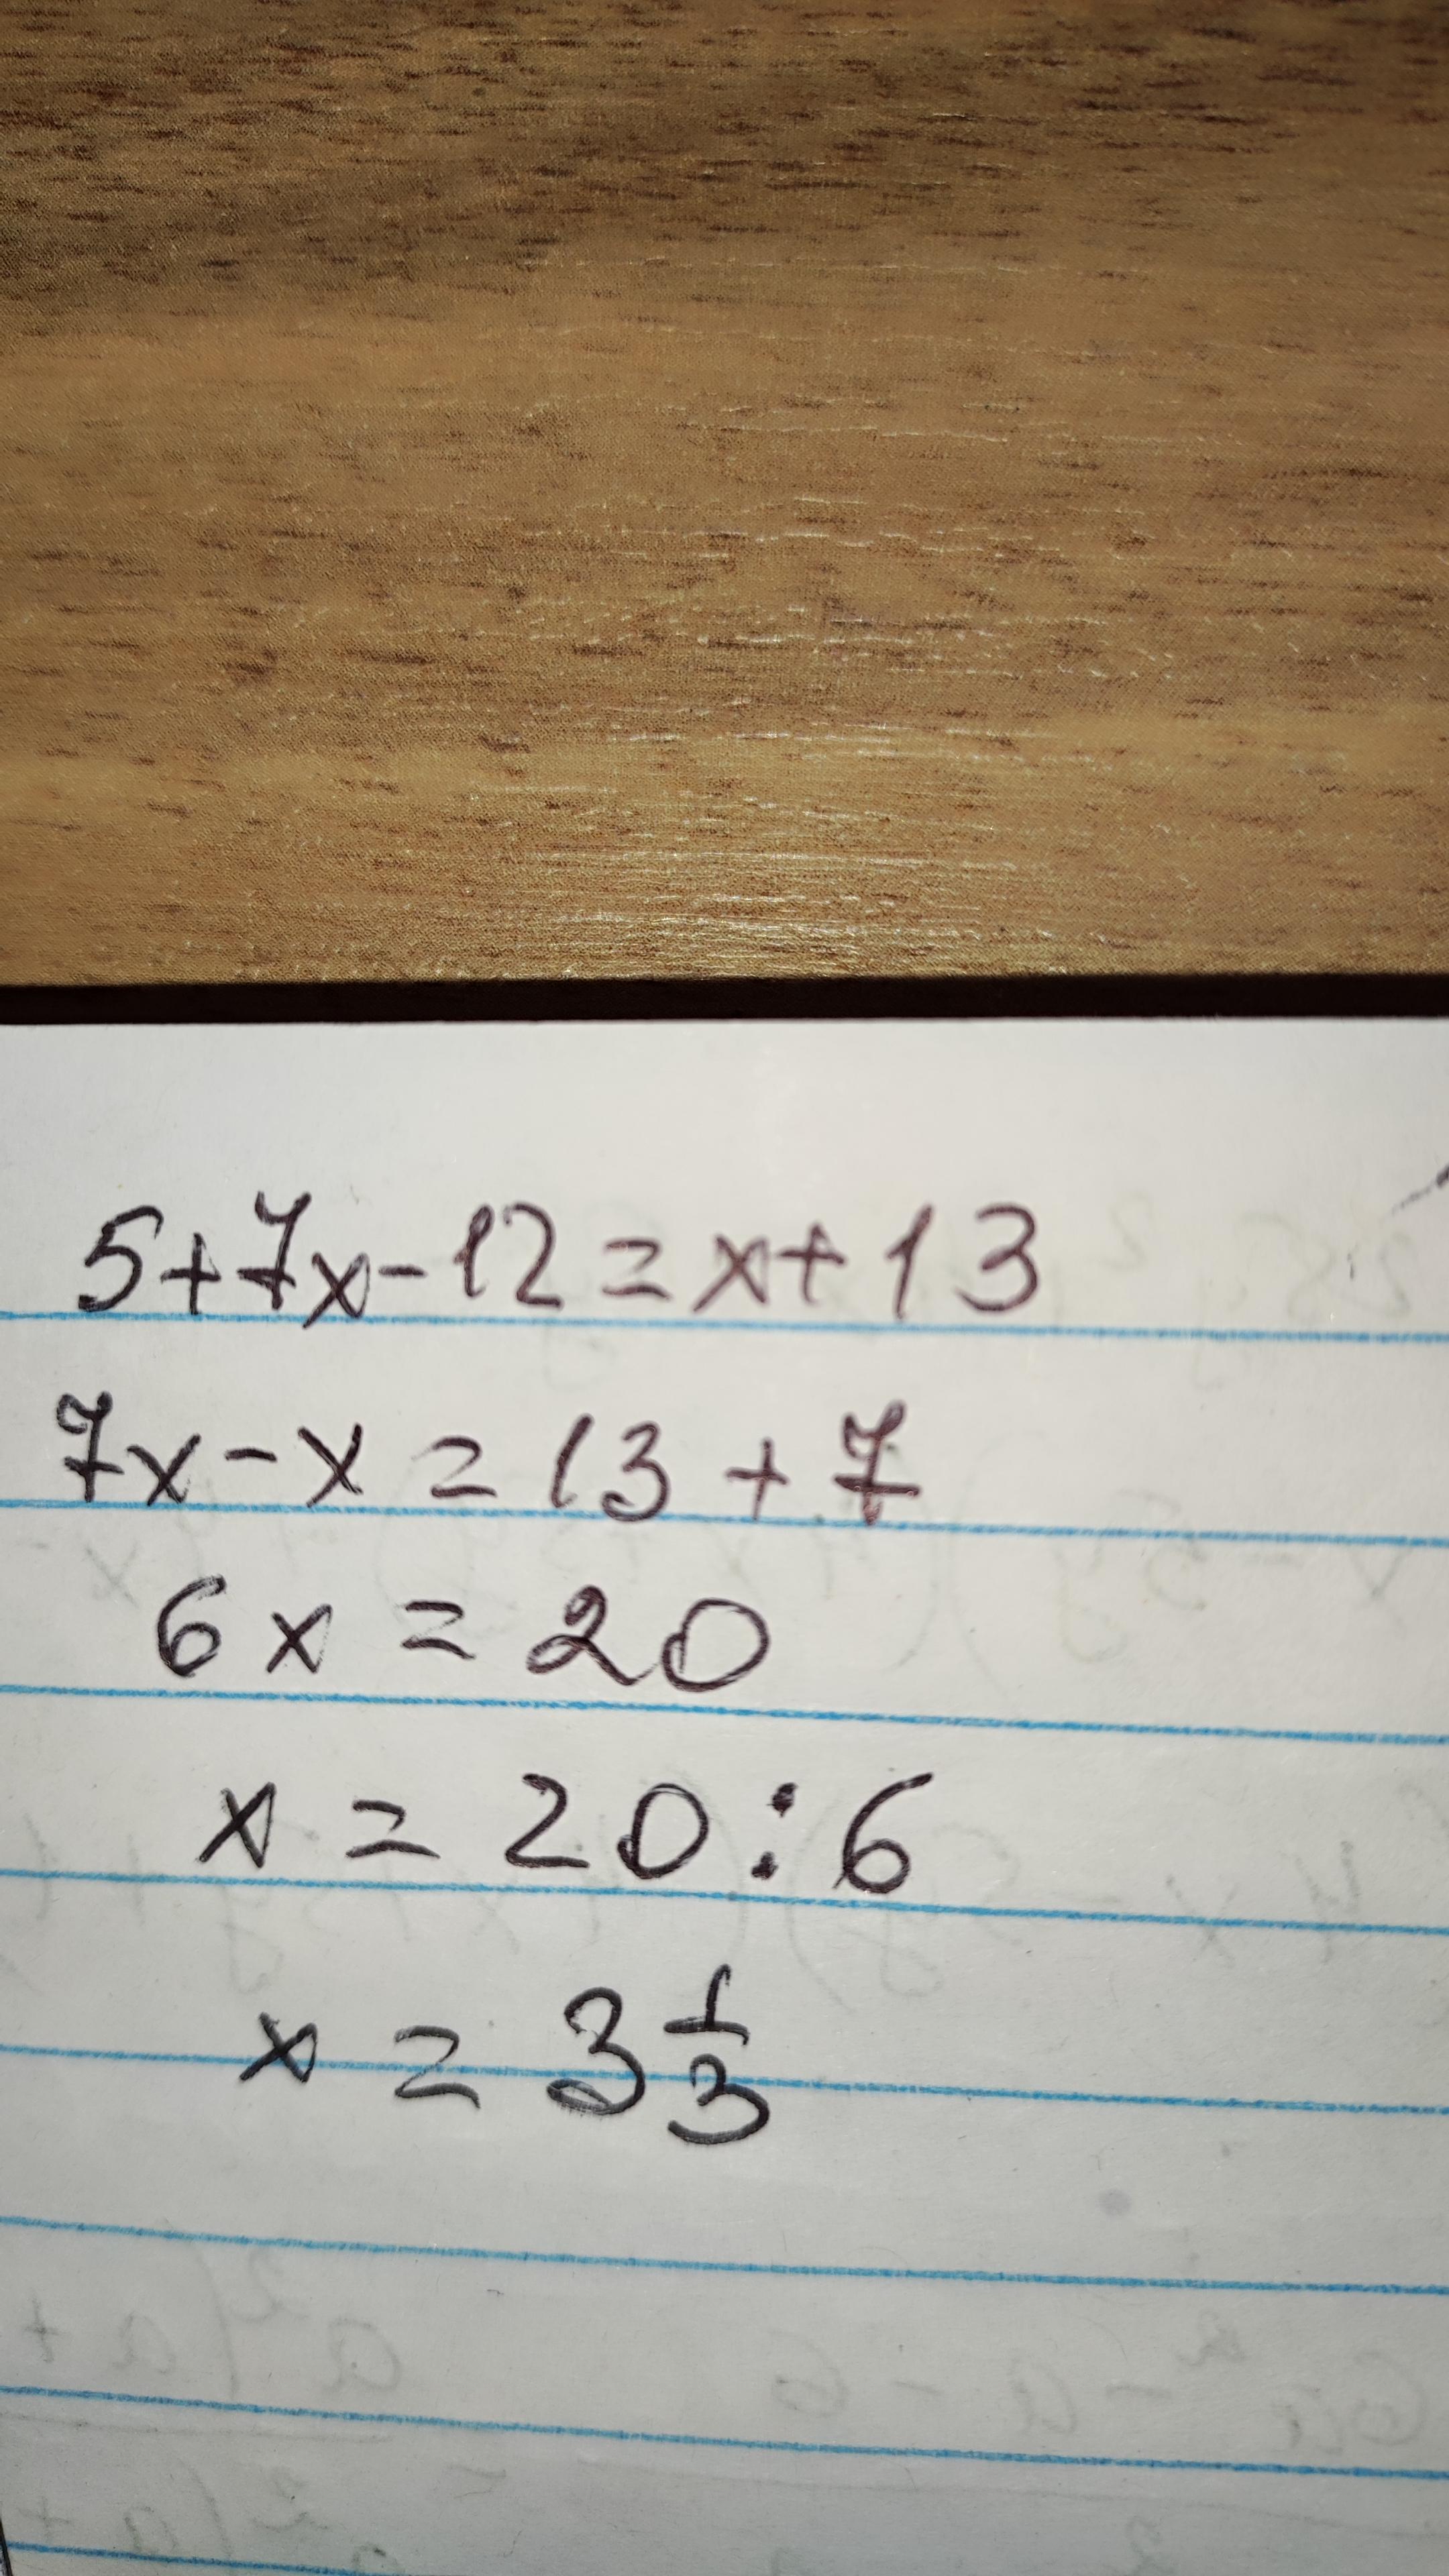 5+7x-12=x+13
7x-x=13+7
6x=20
x=20:6
x=3 1/3